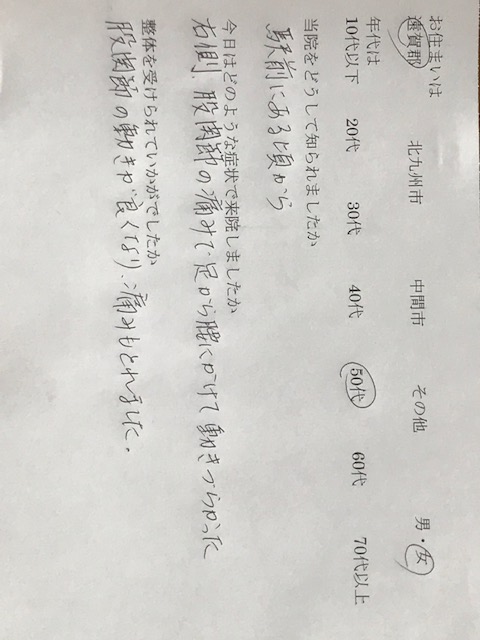 お住まいは
遠賀郡 北九州市 中間市 その他 男・女
年代は
10代以下 20代 30代 40代 50代 60代 70代以上
当院をどうして知られましたか
駅前にある頃から
今日はどのような症状で来院しましたか
右側、股関節の痛みで足から腰にかけて動きづらかった
整体を受けられていかがでしたか
股関節の動きが良くなり、痛みもとれました。